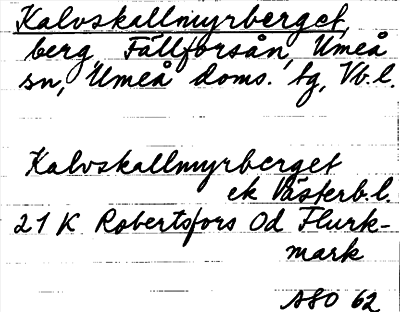 Kalvskallmyrberget,
berg, Fällforsån, Umeå
sn, Umeå doms. tg, Vb.l.
Kalvskallmyrberget
ek Västerb.l.
21 K Robertsfors Od Flurk-
mark
ASO 62